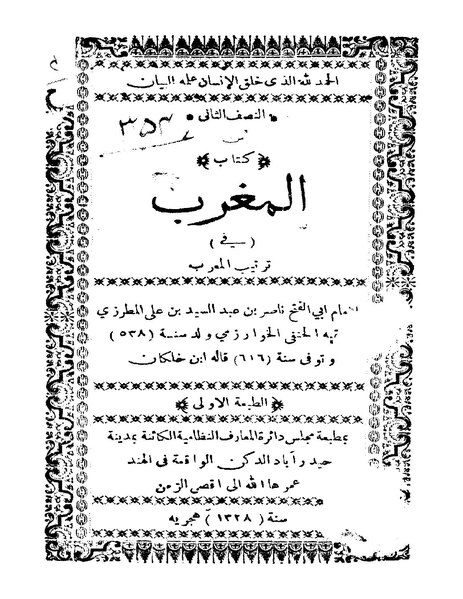 الحمد لله الذى خلق الإنسان علمه البيان
النصف الثانى
٣٥٤
من
كتاب
المغرب
( في )
ترتيب المعرب
مام ابي الفتح ناصر بن عبد السيد بن على المطرزي
الحنفى الخوارزمي ولد سنة ( ٥٣٨ )
و توفى سنة (٦١٦) قاله ابن خلكان
الطبعة الاولى
بمطبعة مجلس دائرة المعارف النظامية الكائنة بمدينة
حيدر آباد الدكن الواقعة في الهند
عمرها الله الى اقصى الزمن
سنة ( ١٣٢٨ ) هجريه